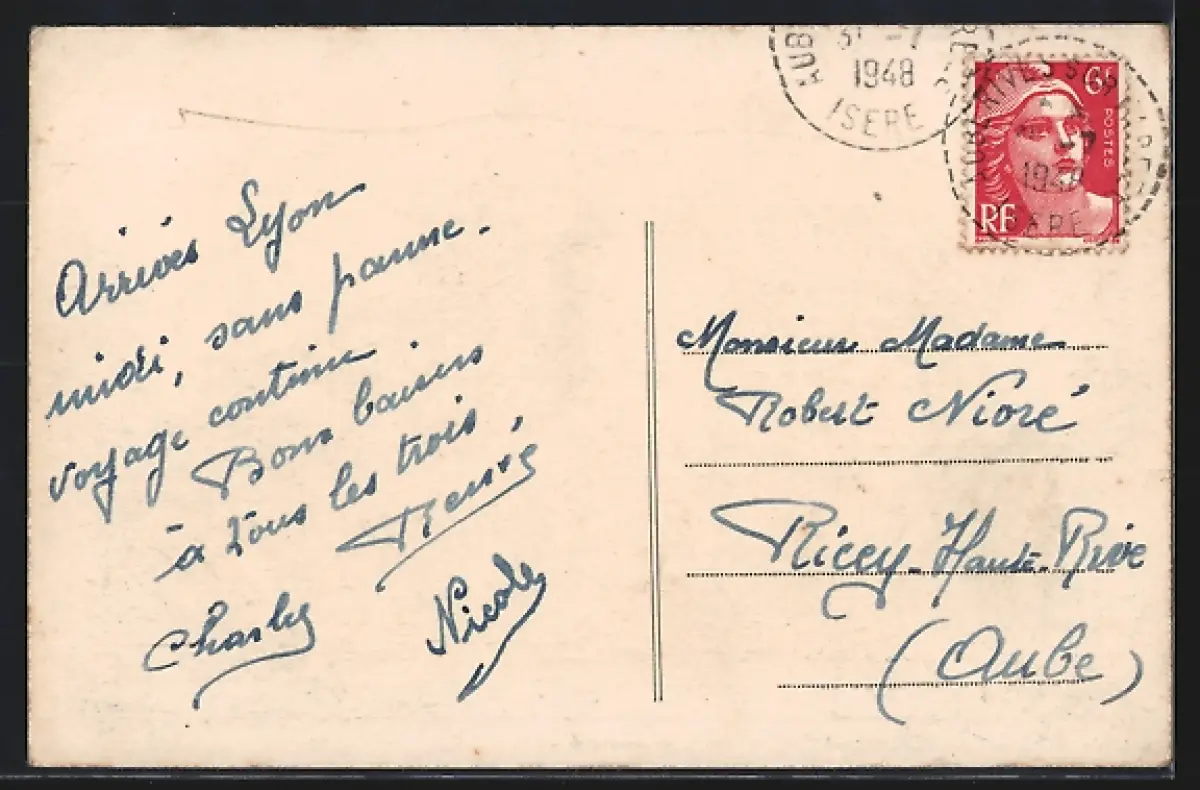 Arrivés Lyon
midi, sans panne.
voyage continue
Bons baisers
à tous les trois,
René
Charly
Nicole
31 -7
1948
ISERE
6F
POSTES
RF
AUBERIVES S R VAREZE
1948
ISERE
Monsieur Madame
Robert Nioré
Ricey-Haute-Rive
(Aube)